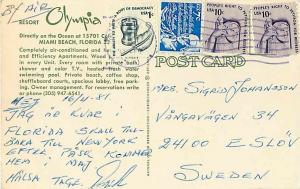 BY AIR
Olympia
RESORT MOTEL
Directly on the Ocean at 15701 Collins
MIAMI BEACH, FLORIDA
Completely air-conditioned and
and Efficiency Apartments. Wood
in every unit. Every room with private bath
shower and color T.V., heated fresh water
swimming pool. Private beach, coffee shop,
shuffleboard courts, spacious lobby, free park-
ing. Owner management.
For reservations (305) 947-6541
ROOTS OF DEMOCRACY
USA 1c
PEOPLE'S RIGHT TO PETITION
FOR REDRESS
USA 10c
PEOPLE'S RIGHT TO PETITION
FOR REDRESS
USA 10c
POST CARD
HEJ 16/4-81
JAG ÄR KVAR I
FLORIDA SKALL TILL-
BAKA TILL NEW YORK
EFTER PÅSK KOMMER
HEM I MAJ
HÄLSA TAGE.
MRS. SIGRID JOHANSSON
VÅNGAVÄGEN 34
24100 ESLÖV
SWEDEN